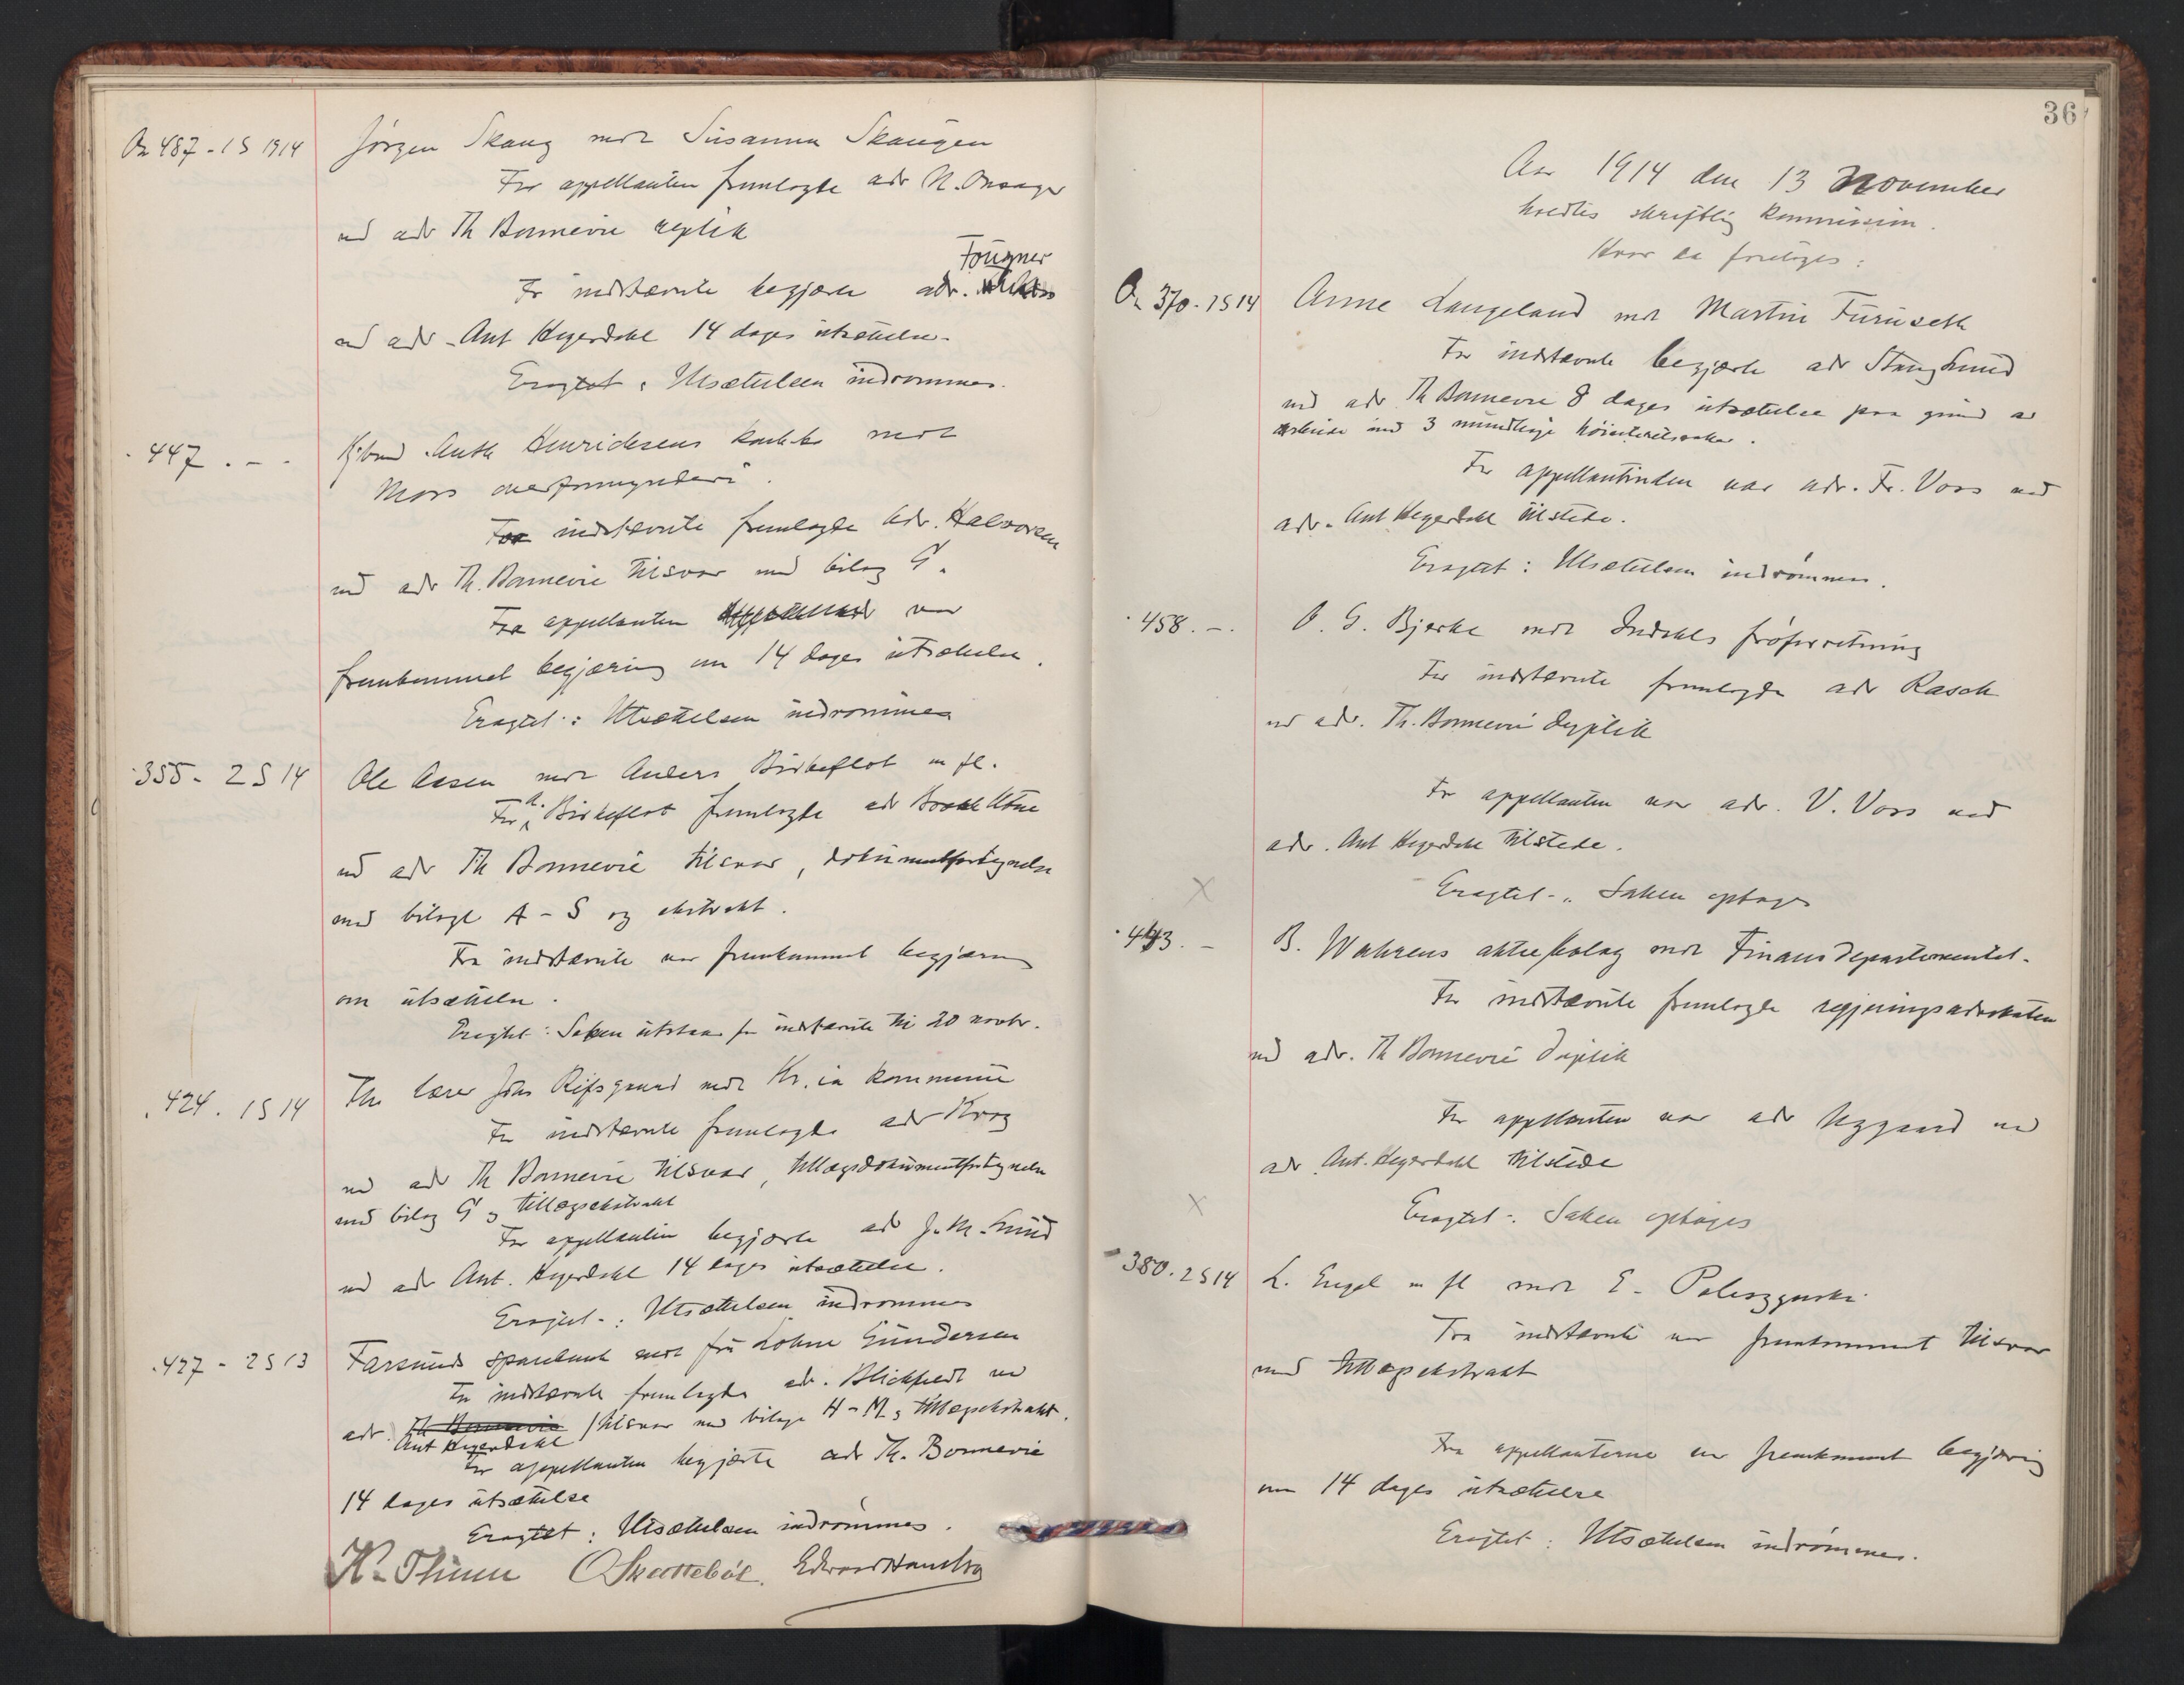 On 487 - 1S 1914 Jörgen Skaug mot Susanna Skaugen
For appellanten fremlagte adv N. Onsager
ved adv Th Bonnevie replik
Fougner
For indstevnte begjærte adv.
ved adv. Ant Heyerdahl 14 dages utsættelse.
Eragtet: Utsættelsen indrømmes.
447. - . Kjøbmd Anth Henriksens konkbo mot
Moss overformynderi.
For indstevnte fremlagde Adv. Halvorsen
ved adv Th. Bonnevie tilsvar med bilag G.
Fra appellanten var
fremkommet begjæring om 14 dages utsættelse.
Eragtet: Utsættelsen indrømmes
355 - 2 S 14 Ole Aasen mot Anders Birkeflot m fl.
For A. Birkeflot fremlagte adv Utne
ved adv Th Bonnevie tilsvar, dokumentfortegnelse
med bilage A - S og ekstrakt.
Fra indstævnte var fremkommet begjæring
om utsættelse.
Eragtet: Saken utstaar for indstævnte til 20 novbr.
424. 1 S 14 Thv lærer Johs Rifsgaard mot Kr.ia kommune
For indstevnte fremlagte adv Krog
ved adv Th Bonnevie tilsvar, tillægsdokumentfortegnelse
med bilag G og tillægsekstrakt
For appellanten begjærte adv J. M. Lund
ved adv Ant. Heyerdahl 14 dages utsættelse.
Eragtet: Utsættelsen indrømmes
427 - 2 S 13 Farsunds sparebank mot fru Lohne Gundersen
For indstevnte fremlagde adv. Blickfeldt ved
adv. Th Bonnevie / tilsvar med bilage H - M og tillægsekstrakt.
Ant Heyerdahl
For appellanten begjærte adv Th. Bonnevie
14 dages utsættelse
Eragtet: Utsættelsen indrømmes.
K. Thinn O Skattebøl. Edvard Hambro
36
Aar 1914 den 13 November
holdtes skriftlig kommission.
Hvor da foretoges:
On 370. 1S14 Anne Langeland mot Martin Furuseth
For indstævnte begjærte adv Stang Lund
ved adv Th Bonnevie 8 dages utsættelse paa grund av
arbeide med 3 mundtlige höiesteretssaker.
For appellantinden var adv. Fr. Voss ved
adv. Ant Heyerdahl tilstede.
Eragtet: Utsættelsen indrømmes.
458. - . O. G. Bjerke mot Indahls frøforretning
For indstevnte fremlagde adv Rasch
ved adv. Th. Bonnevie duplik
For appellanten var adv. V. Voss ved
adv. Ant Heyerdahl tilstede.
X Eragtet: Saken optages
443. - B. Wahrens aktiebolag mot Finansdepartementet.
For indstævnte fremlagde regjeringsadvokaten
ved adv. Th Bonnevie duplik
For appellanten var adv Nygaard ved
adv Ant. Heyerdahl tilstede
X Eragtet: Saken optages
380. 2 S 14 L. Engel m fl mot E. Paleszynski
Fra indstævnte var fremkommet tilsvar
med tillægsekstrakt
Fra appellanterne var fremkommet begjæring
om 14 dages utsættelse
Eragtet: Utsættelsen indrømmes.